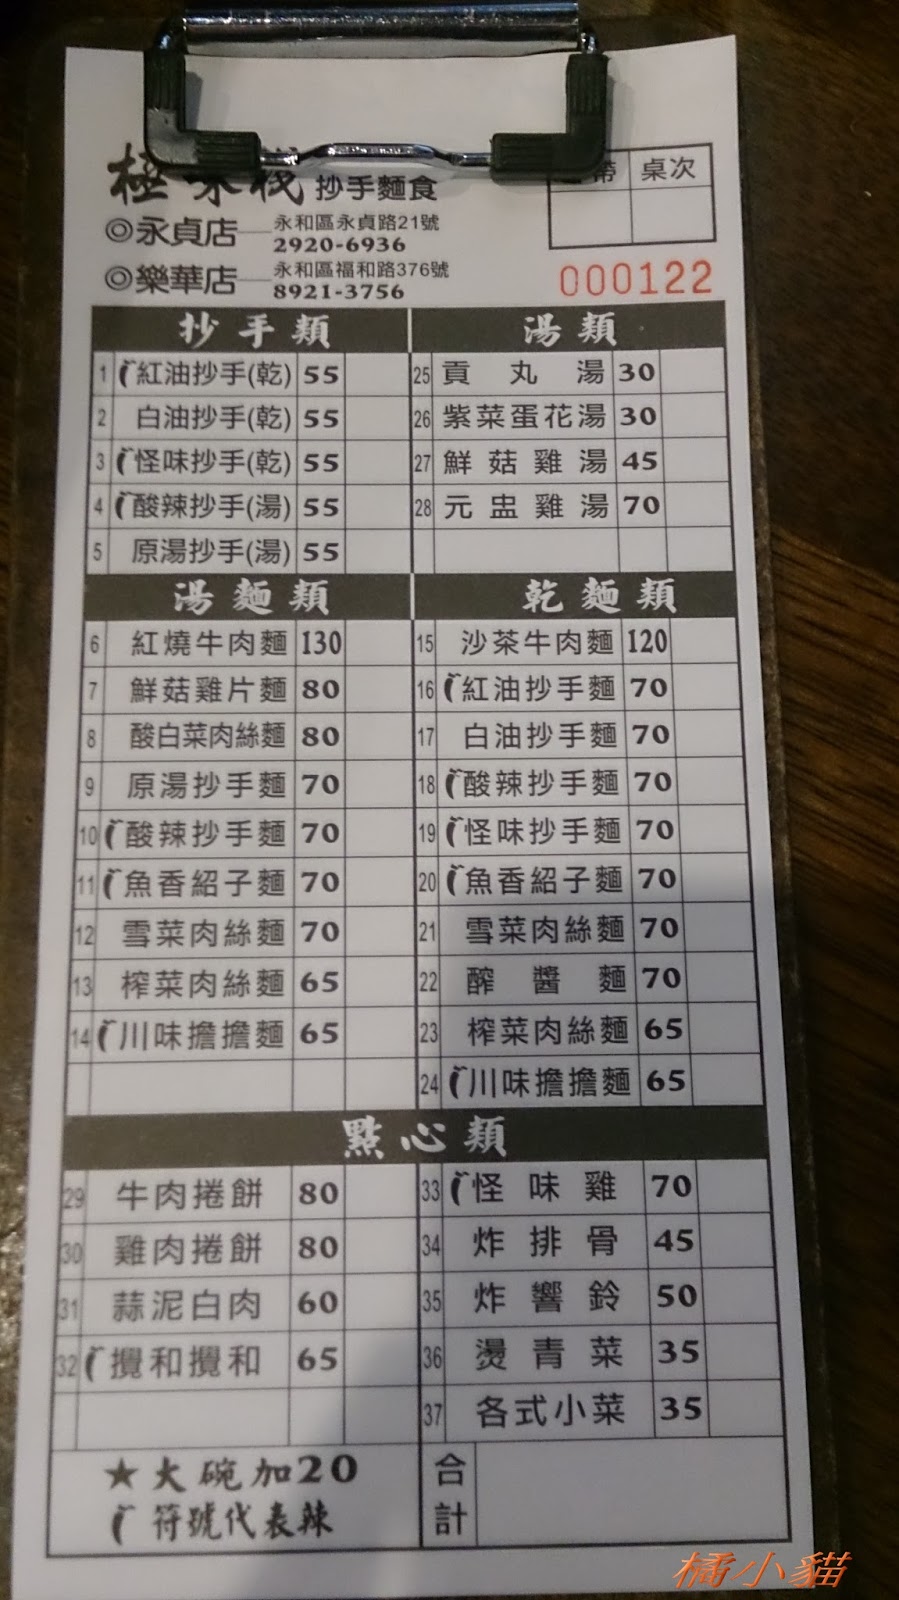 極味棧 抄手麵食
◎永貞店 永和區永貞路21號
2920-6936
◎樂華店 永和區福和路376號
8921-3756
帶 桌次
000122
抄手類
1 紅油抄手(乾) 55
2 白油抄手(乾) 55
3 怪味抄手(乾) 55
4 酸辣抄手(湯) 55
5 原湯抄手(湯) 55
湯類
25 貢丸湯 30
26 紫菜蛋花湯 30
27 鮮菇雞湯 45
28 元盅雞湯 70
湯麵類
6 紅燒牛肉麵 130
7 鮮菇雞片麵 80
8 酸白菜肉絲麵 80
9 原湯抄手麵 70
10 酸辣抄手麵 70
11 魚香紹子麵 70
12 雪菜肉絲麵 70
13 榨菜肉絲麵 65
14 川味擔擔麵 65
乾麵類
15 沙茶牛肉麵 120
16 紅油抄手麵 70
17 白油抄手麵 70
18 酸辣抄手麵 70
19 怪味抄手麵 70
20 魚香紹子麵 70
21 雪菜肉絲麵 70
22 醡醬麵 70
23 榨菜肉絲麵 65
24 川味擔擔麵 65
點心類
29 牛肉捲餅 80
30 雞肉捲餅 80
31 蒜泥白肉 60
32 攪和攪和 65
33 怪味雞 70
34 炸排骨 45
35 炸響鈴 50
36 燙青菜 35
37 各式小菜 35
★大碗加20
符號代表辣
合計
橘小貓